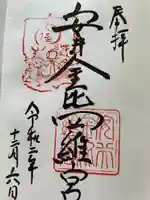 奉拝
安井金毘羅宮
令和二年
十二月六日